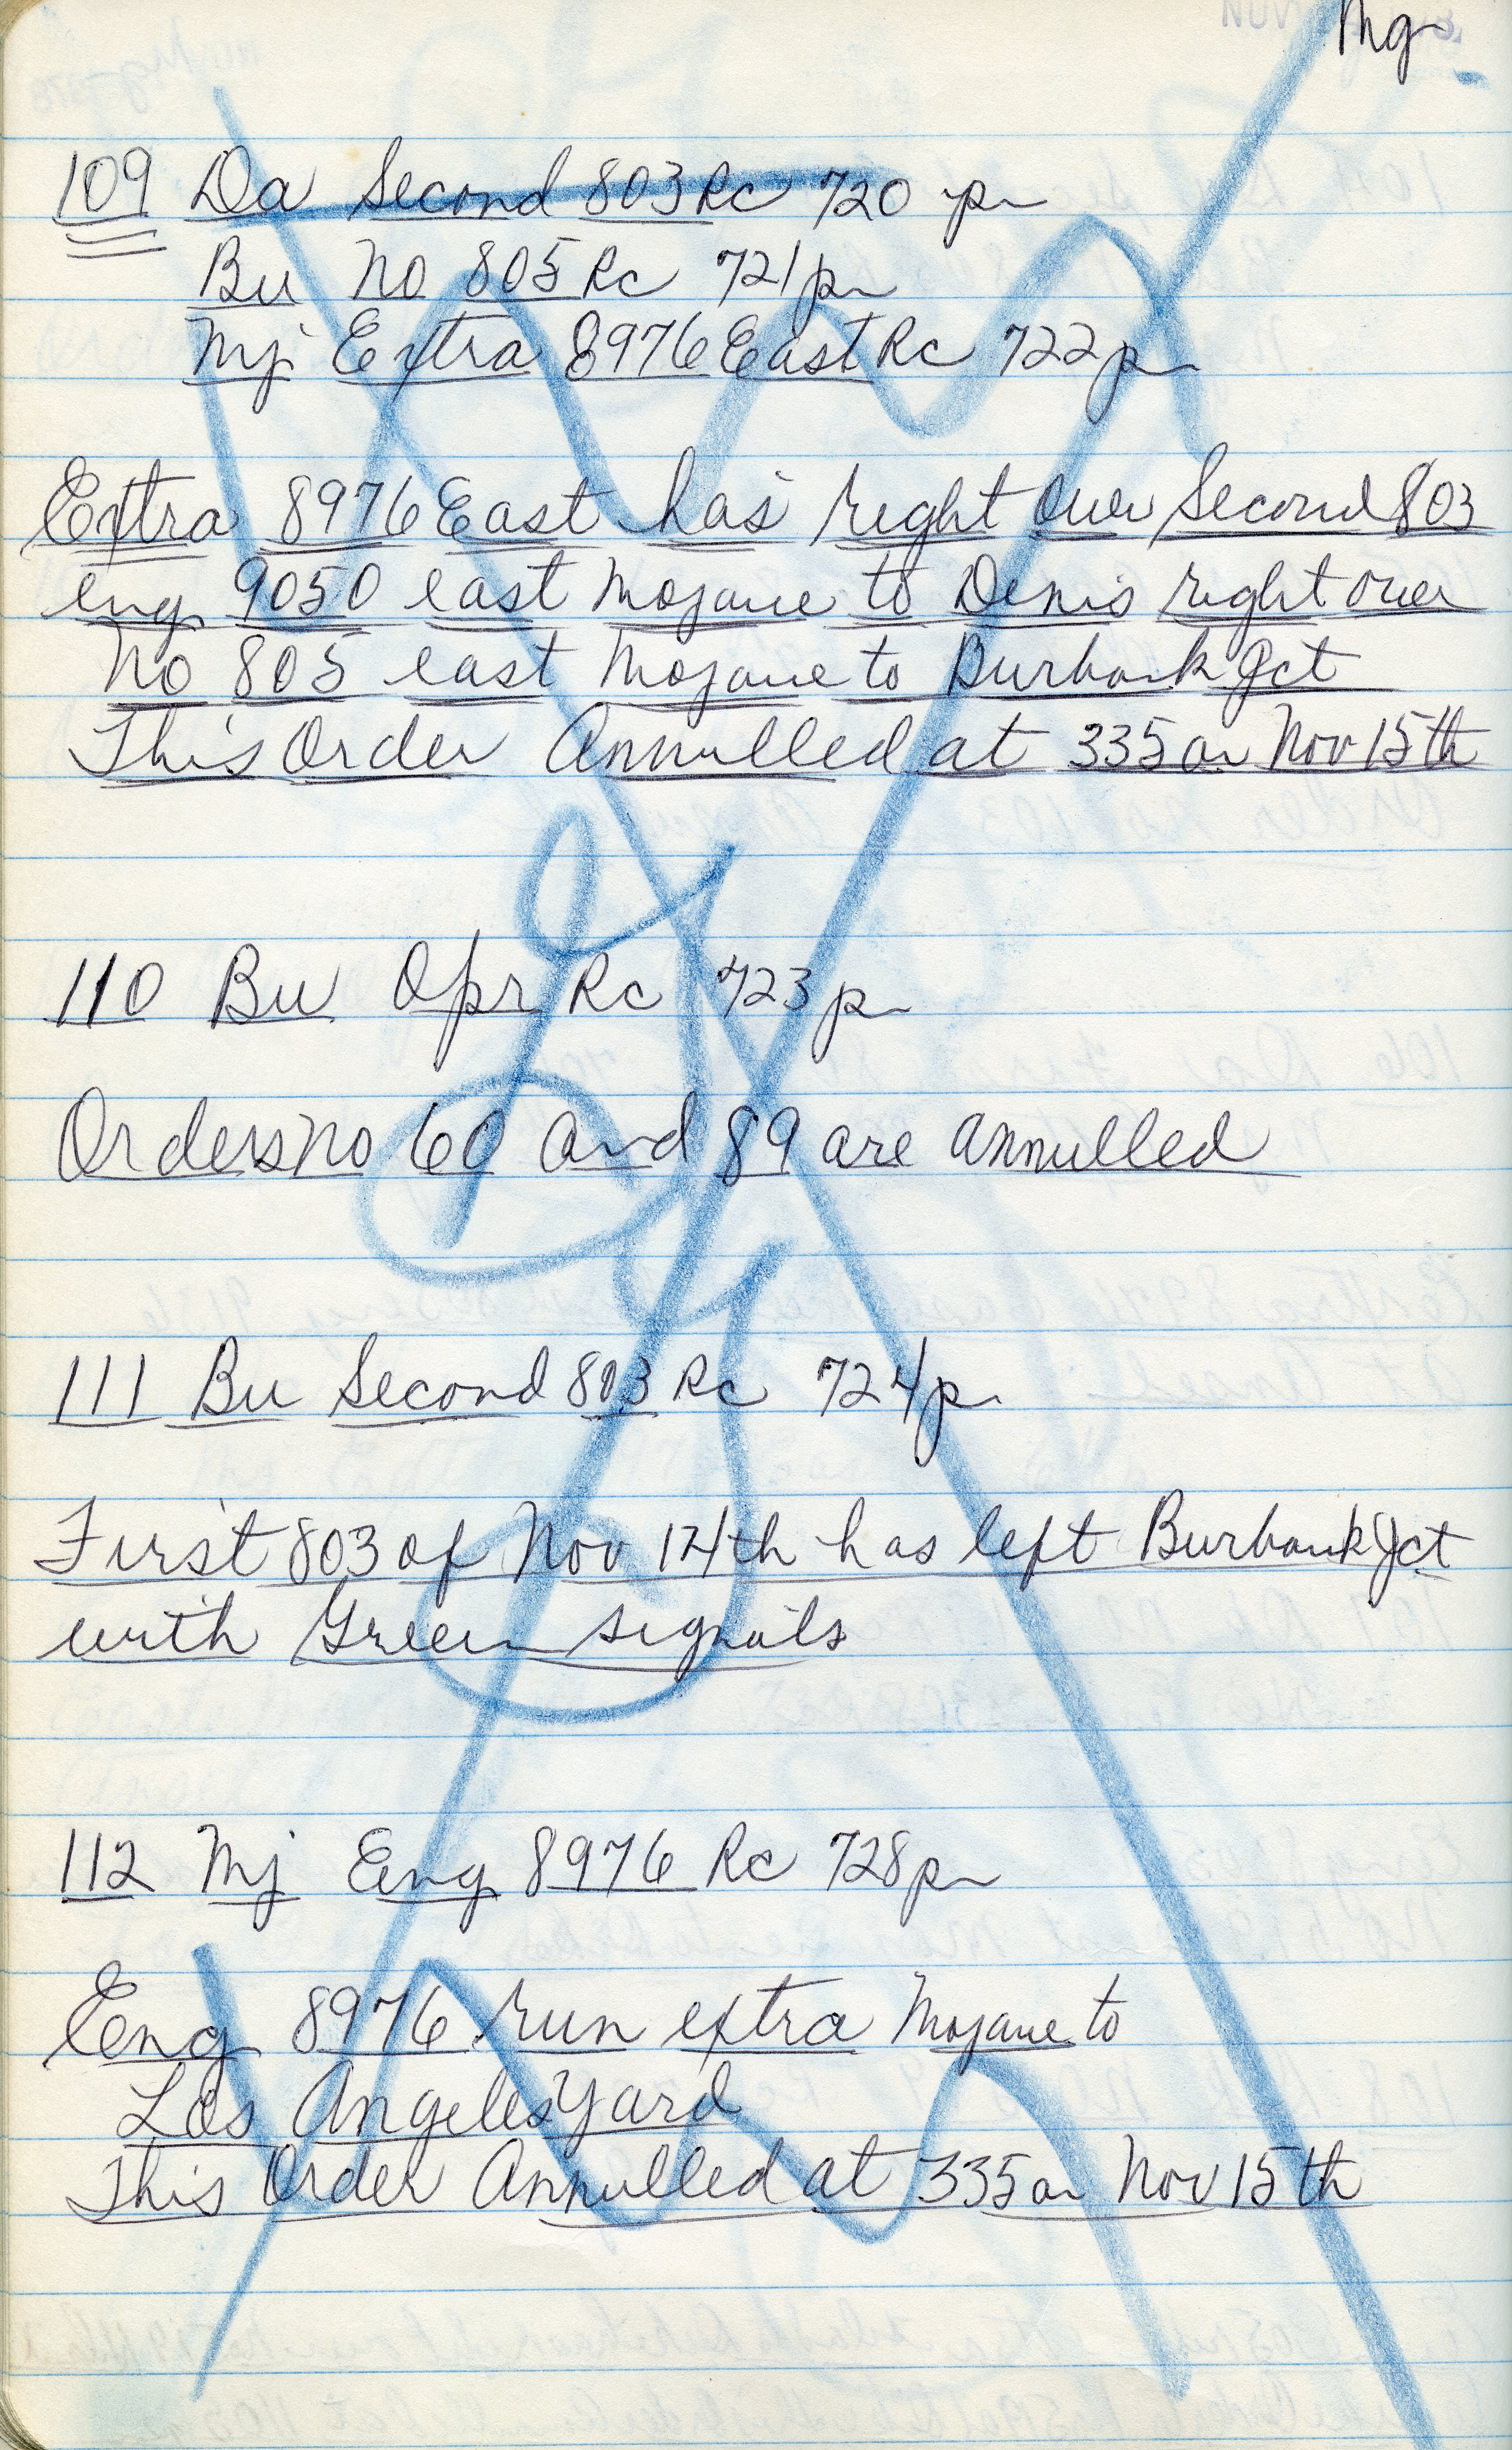 Mg
109 Da Second 803 Rc 720 pm
Bu No 805 Rc 721 pm
Mj Extra 8976 East Rc 722 pm
Extra 8976 East has right over Second 803
eng 9050 east Mojave to Denis right over
No 805 east Mojave to Burbank Jct
This Order Annulled at 335 am Nov 15th
110 Bu Opr Rc 723 pm
Orders No 60 and 89 are annulled
111 Bu Second 803 Rc 724 pm
First 803 of Nov 14th has left Burbank Jct
with Green signals
112 Mj Eng 8976 Rc 728 pm
Eng 8976 run extra Mojave to
Los Angeles Yard
This Order Annulled at 335 am Nov 15th